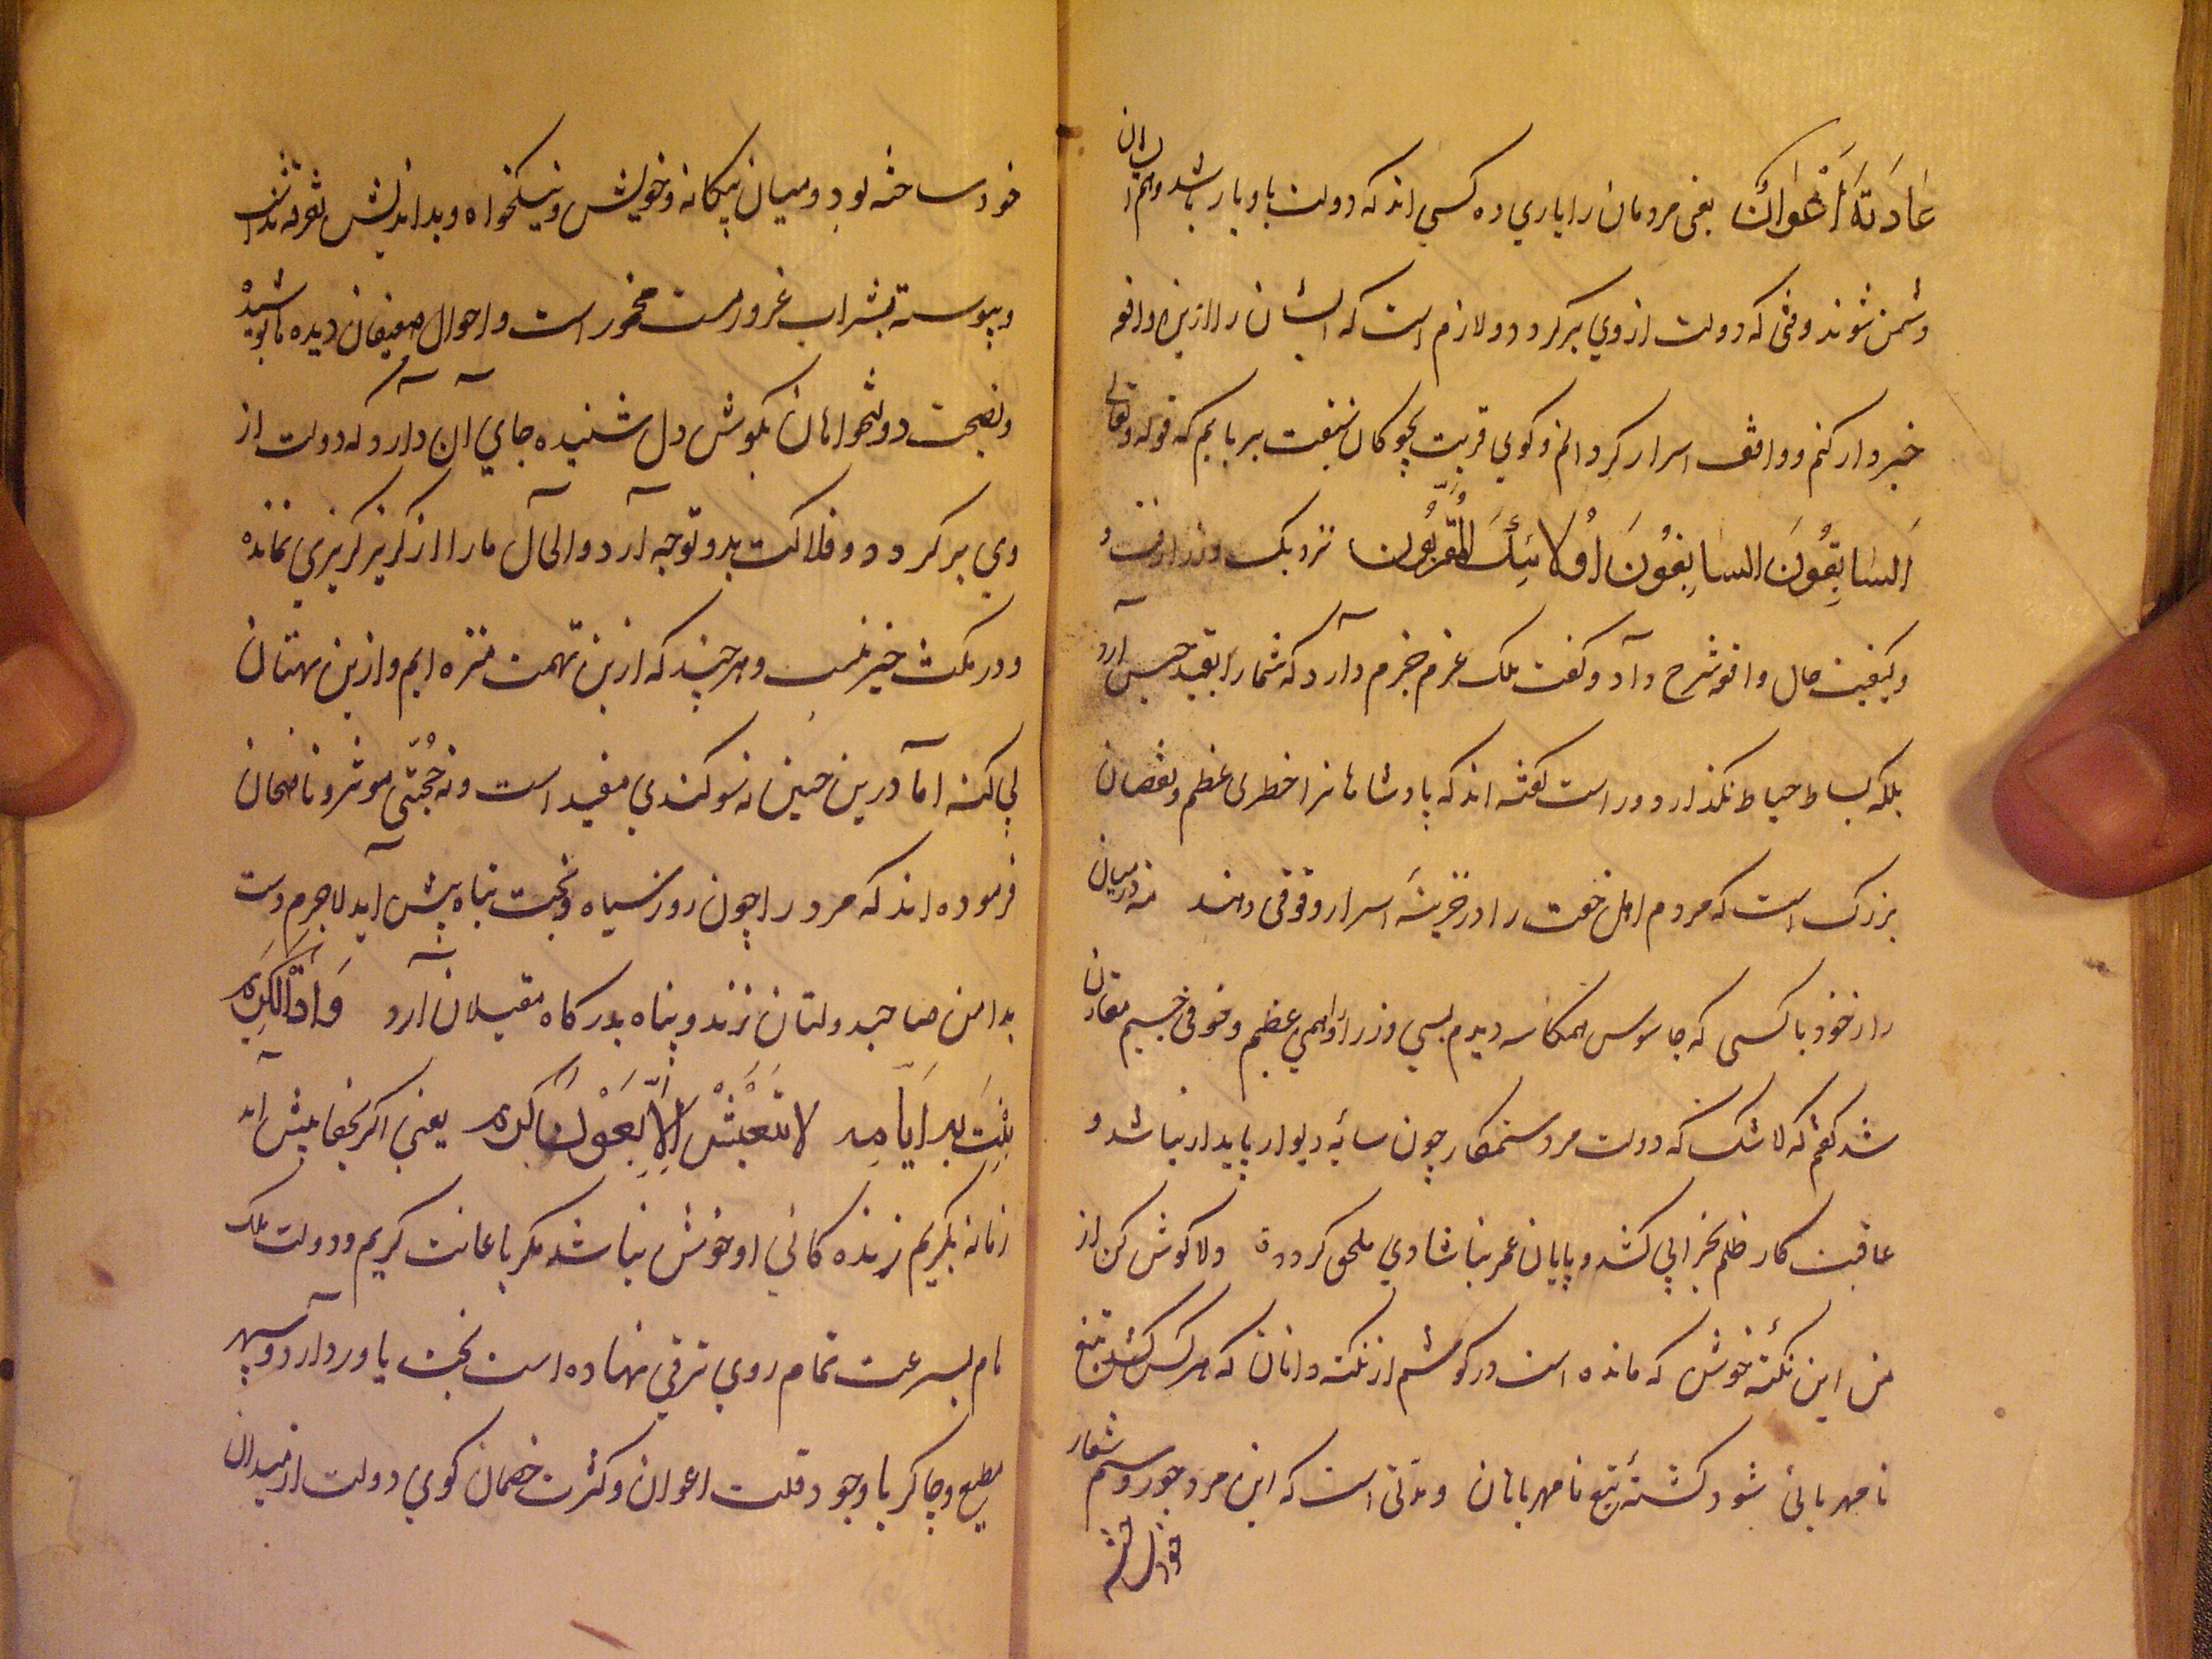 عَادَتهَ اَعْوَانُكَ یعنی مردمان را یاری ده کسی اند که دولت با او یار باشد و هم ایشان
دشمن شوند وقتی که دولت از وي برکردد و لازم است که ایشان را ازین واقعه
خبردار کنم و واقف اسرار کردانم و کوي قربت بچوکان سبقت بربایم که قوله تعالی
اَلسَابِقُونَ السَابِقُونَ اُولَائِكَ المُقَرَّبُون نزدیک وزرا رفت و
و کیفیت حال واقعه شرح داد و کفت ملک عزم جزم دارد که شما را بقید حبس آرد
بلکه بساط حیات نکذارد و راست کفته اند که پادشاهانرا خطری عظیم و نقصان
بزرک است که مردم اهل خفت را در خزینۀ اسرار وقوفی دهند منه در میان
راز خود با کسی که جاسوس همکاسه دیدم بسی وزرا را وهمي عظیم و خوفی جسیم مقارن
شد کفتم که لاشک که دولت مرد ستمکار چون سایۀ دیوار پایدار نباشد و
عاقبت کار ظلم بخرابي کشد و پایان عمر بناشادي ملحق کردد دلا کوش کن از
من این نکتۀ خوش که مانده است در کوشم از نکته دانان که هر کس کشد تیغ
نامهربانی شود کشتۀ تیغ نامهربانان و مدتی است که این مرد جور و ستم شعار
خود ساخته
خود ساخته بود و میان بیکانه و خویش و نیکخواه و بداندیش تفرقه نداشت
و پیوسته بشراب غرور مست و مخمور است و احوال ضعیفان دیده نا پوشید
و نصیحت دولتخواهان بکوش دل نشنیده جاي آن دارد که دولت از
وي برکردد و فلاکت بدو توجه آرد و الحال ما را از کریز کریزي نمانده
و درنکث خیر نیست و هرچند که ازین تهمت منزه ایم و ازین بهتان
بي کنه اما درین حین نه سوکندي مفید است و نه حُجّتی موثر و ناصحان
فرموده اند که مرد را چون روز سیاه و بخت تباه پیش آید لاجرم دست
بدامن صاحبدولتان زند و پناه بدرکاه مقبلان آرد وَ اِذَا الکَرِیم
لا تعیش اِلاّ بِعَوْنِ کریم یعني اکر بجفا پیش اید
زمانه بکریم زنده کاني او خوش نباشد مکر با عانت کریم و دولت ملک
نام بسرعت تمام روي ترقي نهاده است بخت یاور دارد و سپهر
مطیع و چاکر با وجود قلت اعوان و کثرت خصمان کوي دولت از میدان